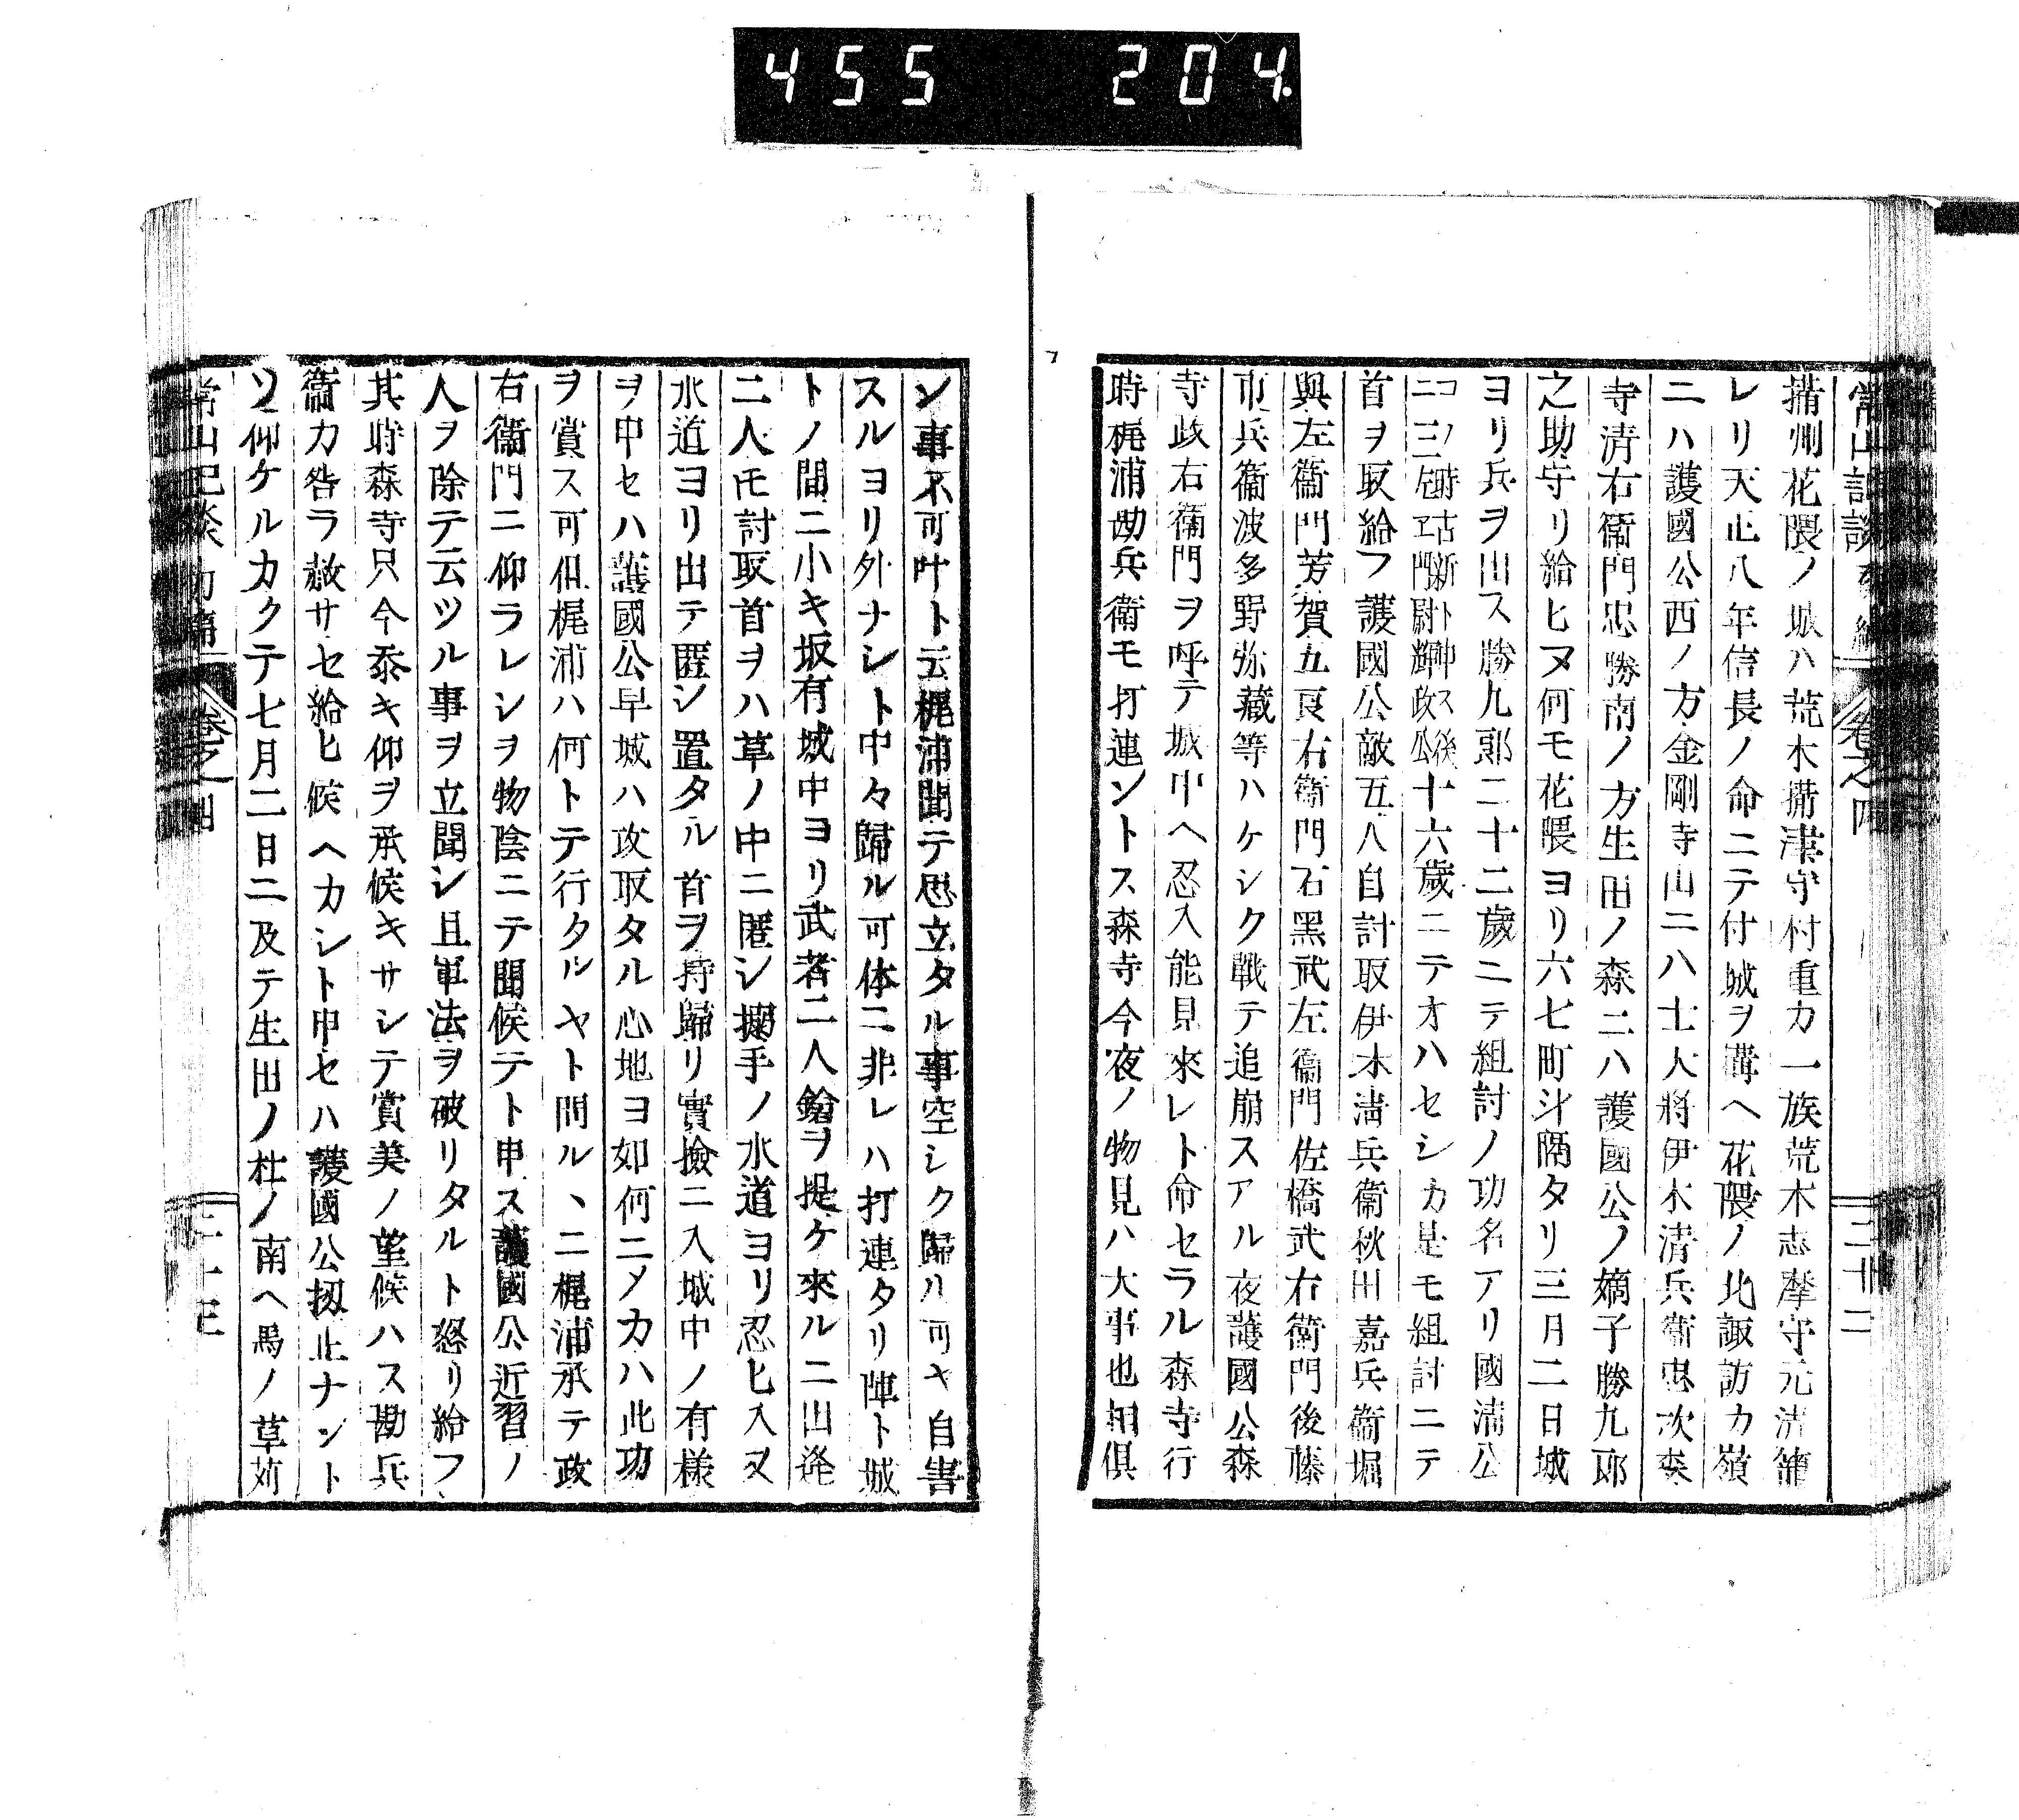 455 204.
常山記談
卷之四
三十二
攝州花隈ノ城ハ荒木攝津守村重カ一族荒木志摩守元淸籠
レリ天正八年信長ノ命ニテ付城ヲ搆ヘ花隈ノ北諏訪カ嶺
ニハ護國公西ノ方金剛寺山ニハ士大將伊木淸兵衞忠次森
寺淸右衞門忠勝南ノ方生田ノ森ニハ護國公ノ嫡子勝九郎
之助守リ給ヒヌ何モ花隈ヨリ六七町斗隔タリ三月二日城
ヨリ兵ヲ出ス勝九郎二十二歲ニテ組討ノ功名アリ國淸公
コノ時古新ト申ス後
ニ三左ヱ門尉輝政公
十六歲ニテオハセシカ是モ組討ニテ
首ヲ取給フ護國公敵五人自討取伊木淸兵衞秋田嘉兵衞堀
與左衞門芳賀五良右衞門石黑武左衞門佐橋武右衞門後藤
市兵衞波多野弥藏等ハケシク戰テ追崩スアル夜護國公森
寺政右衞門ヲ呼テ城中ヘ忍入能見來レト命セラル森寺行
時梶浦勘兵衞モ打連ントス森寺今夜ノ物見ハ大事也相俱
ン事不可叶ト云梶浦聞テ思立タル事空シク歸ル可キ自害
スルヨリ外ナシト中々歸ル可体ニ非レハ打連タリ陣ト城
トノ間ニ小キ坂有城中ヨリ武者二人鎗ヲ提ケ來ルニ出逢
二人モ討取首ヲハ草ノ中ニ匿シ搦手ノ水道ヨリ忍ヒ入又
水道ヨリ出テ匿シ置タル首ヲ持歸リ實撿ニ入城中ノ有樣
ヲ申セハ護國公早城ハ攻取タル心地ヨ如何ニメカハ此功
ヲ賞ス可但梶浦ハ何トテ行タルヤト問ル丶ニ梶浦承テ政
右衞門ニ仰ラレシヲ物陰ニテ聞候テト申ス護國公近習ノ
人ヲ除テ云ツル事ヲ立聞シ且軍法ヲ破リタルト怒リ給フ
其時森寺只今忝キ仰ヲ承候キサシテ賞美ノ望候ハス勘兵
衞カ咎ラ赦サセ給ヒ候ヘカシト申セハ護國公扨止ナント
ソ仰ケルカクテ七月二日ニ及テ生田ノ杜ノ南ヘ馬ノ草苅
常山記談
卷之四
三十三